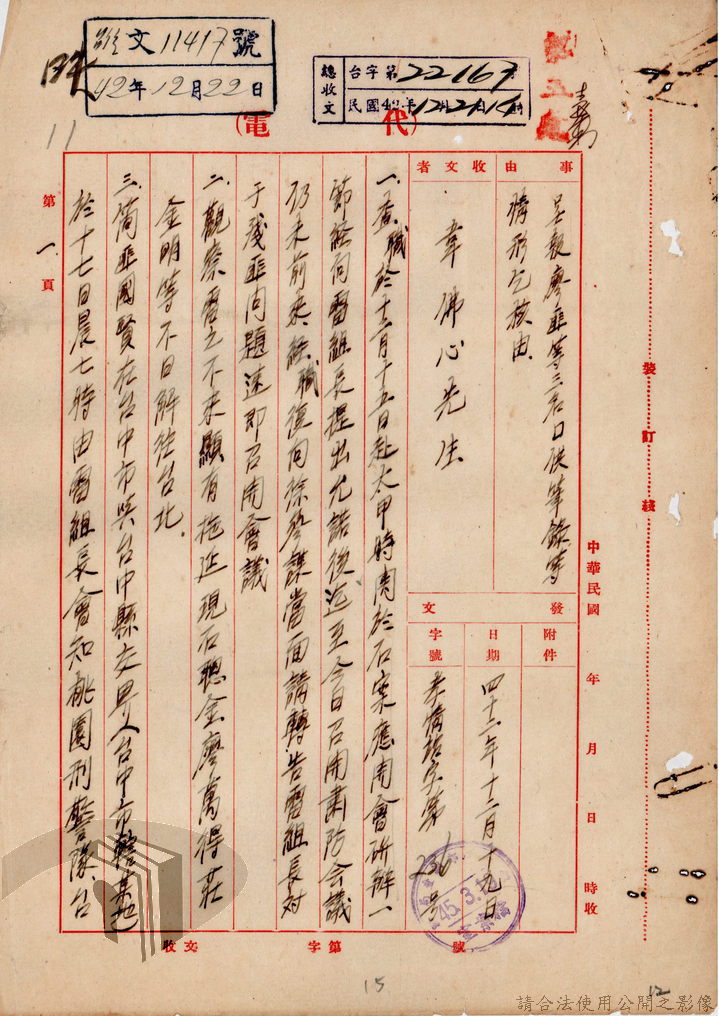 文11417號
42年12月22日
總收文
台字第22167
民國42年12月21日14時
(代電)
11
裝訂綫
中華民國 年 月 日 時收
事由
呈報廖匪等三名口供筆錄等
情形乞核由
收文者
韋佛心先生
發文
附件
日期
四十二年十二月十九日
字號
字第236号
一、查職於十二月十五日赴大甲時關於石案應開會研辦一
節經向雷組長提出允諾後迄至今日召開肅防会議
仍未前來経職復向徐參謀當面請轉告雷組長对
于殘匪问題速即召開會議
二、觀察雷之不來顯有拖延現石聰金廖萬得莊
金明等不日解往台北.
三、简匪國賢在台中市與台中縣交界人台中市轄某地
於十七日晨七時由雷組長會知桃園刑警隊台
第1頁
收文 字第 號
45.3.
15
12
請合法使用公開之影像